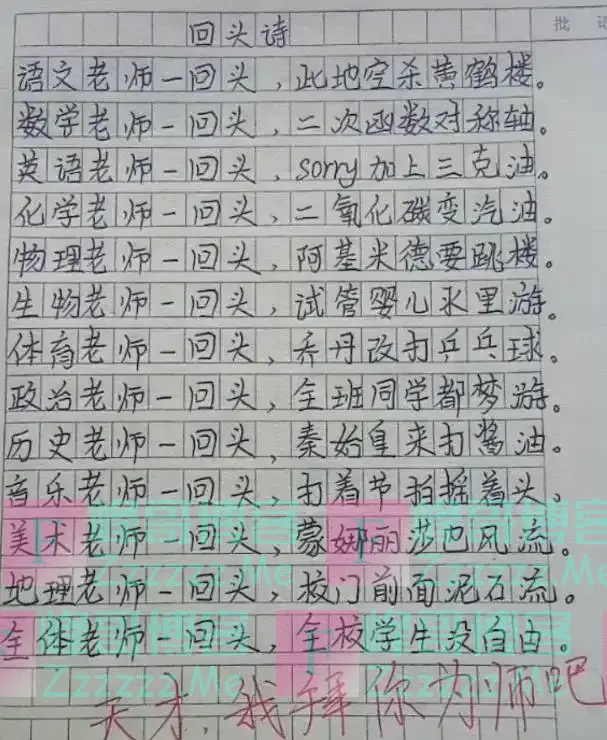 批语
回头诗
语文老师一回头，此地空杀黄鹤楼。
数学老师一回头，二次函数对称轴。
英语老师一回头，sorry加上三克油。
化学老师一回头，二氧化碳变汽油。
物理老师一回头，阿基米德要跳楼。
生物老师一回头，试管婴儿水里游。
体育老师一回头，乔丹改打乒乓球。
政治老师一回头，全班同学都梦游。
历史老师一回头，秦始皇来打酱油。
音乐老师一回头，打着节拍摇着头。
美术老师一回头，蒙娜丽莎也风流。
地理老师一回头，校门前面泥石流。
全体老师一回头，全校学生没自由。
天才，我拜你为师吧
Zzzzzz.Me
Zzzzzz.Me